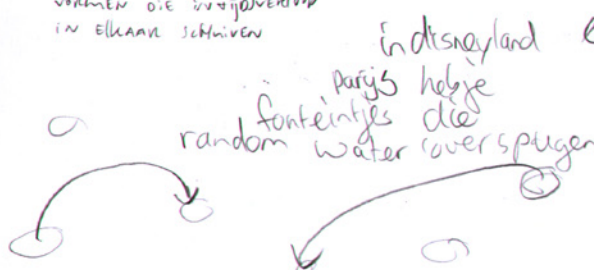 VORMEN DIE
IN ELKAAR SCHUIVEN
in disneyland
parijs heb je
fonteintjes die
random water overspugen